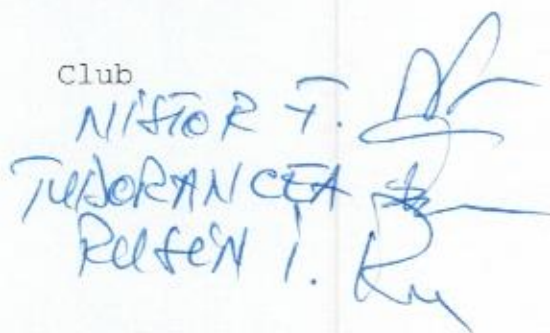 Club
NISTOR T.
TUDORANCEA
RUSEN I.